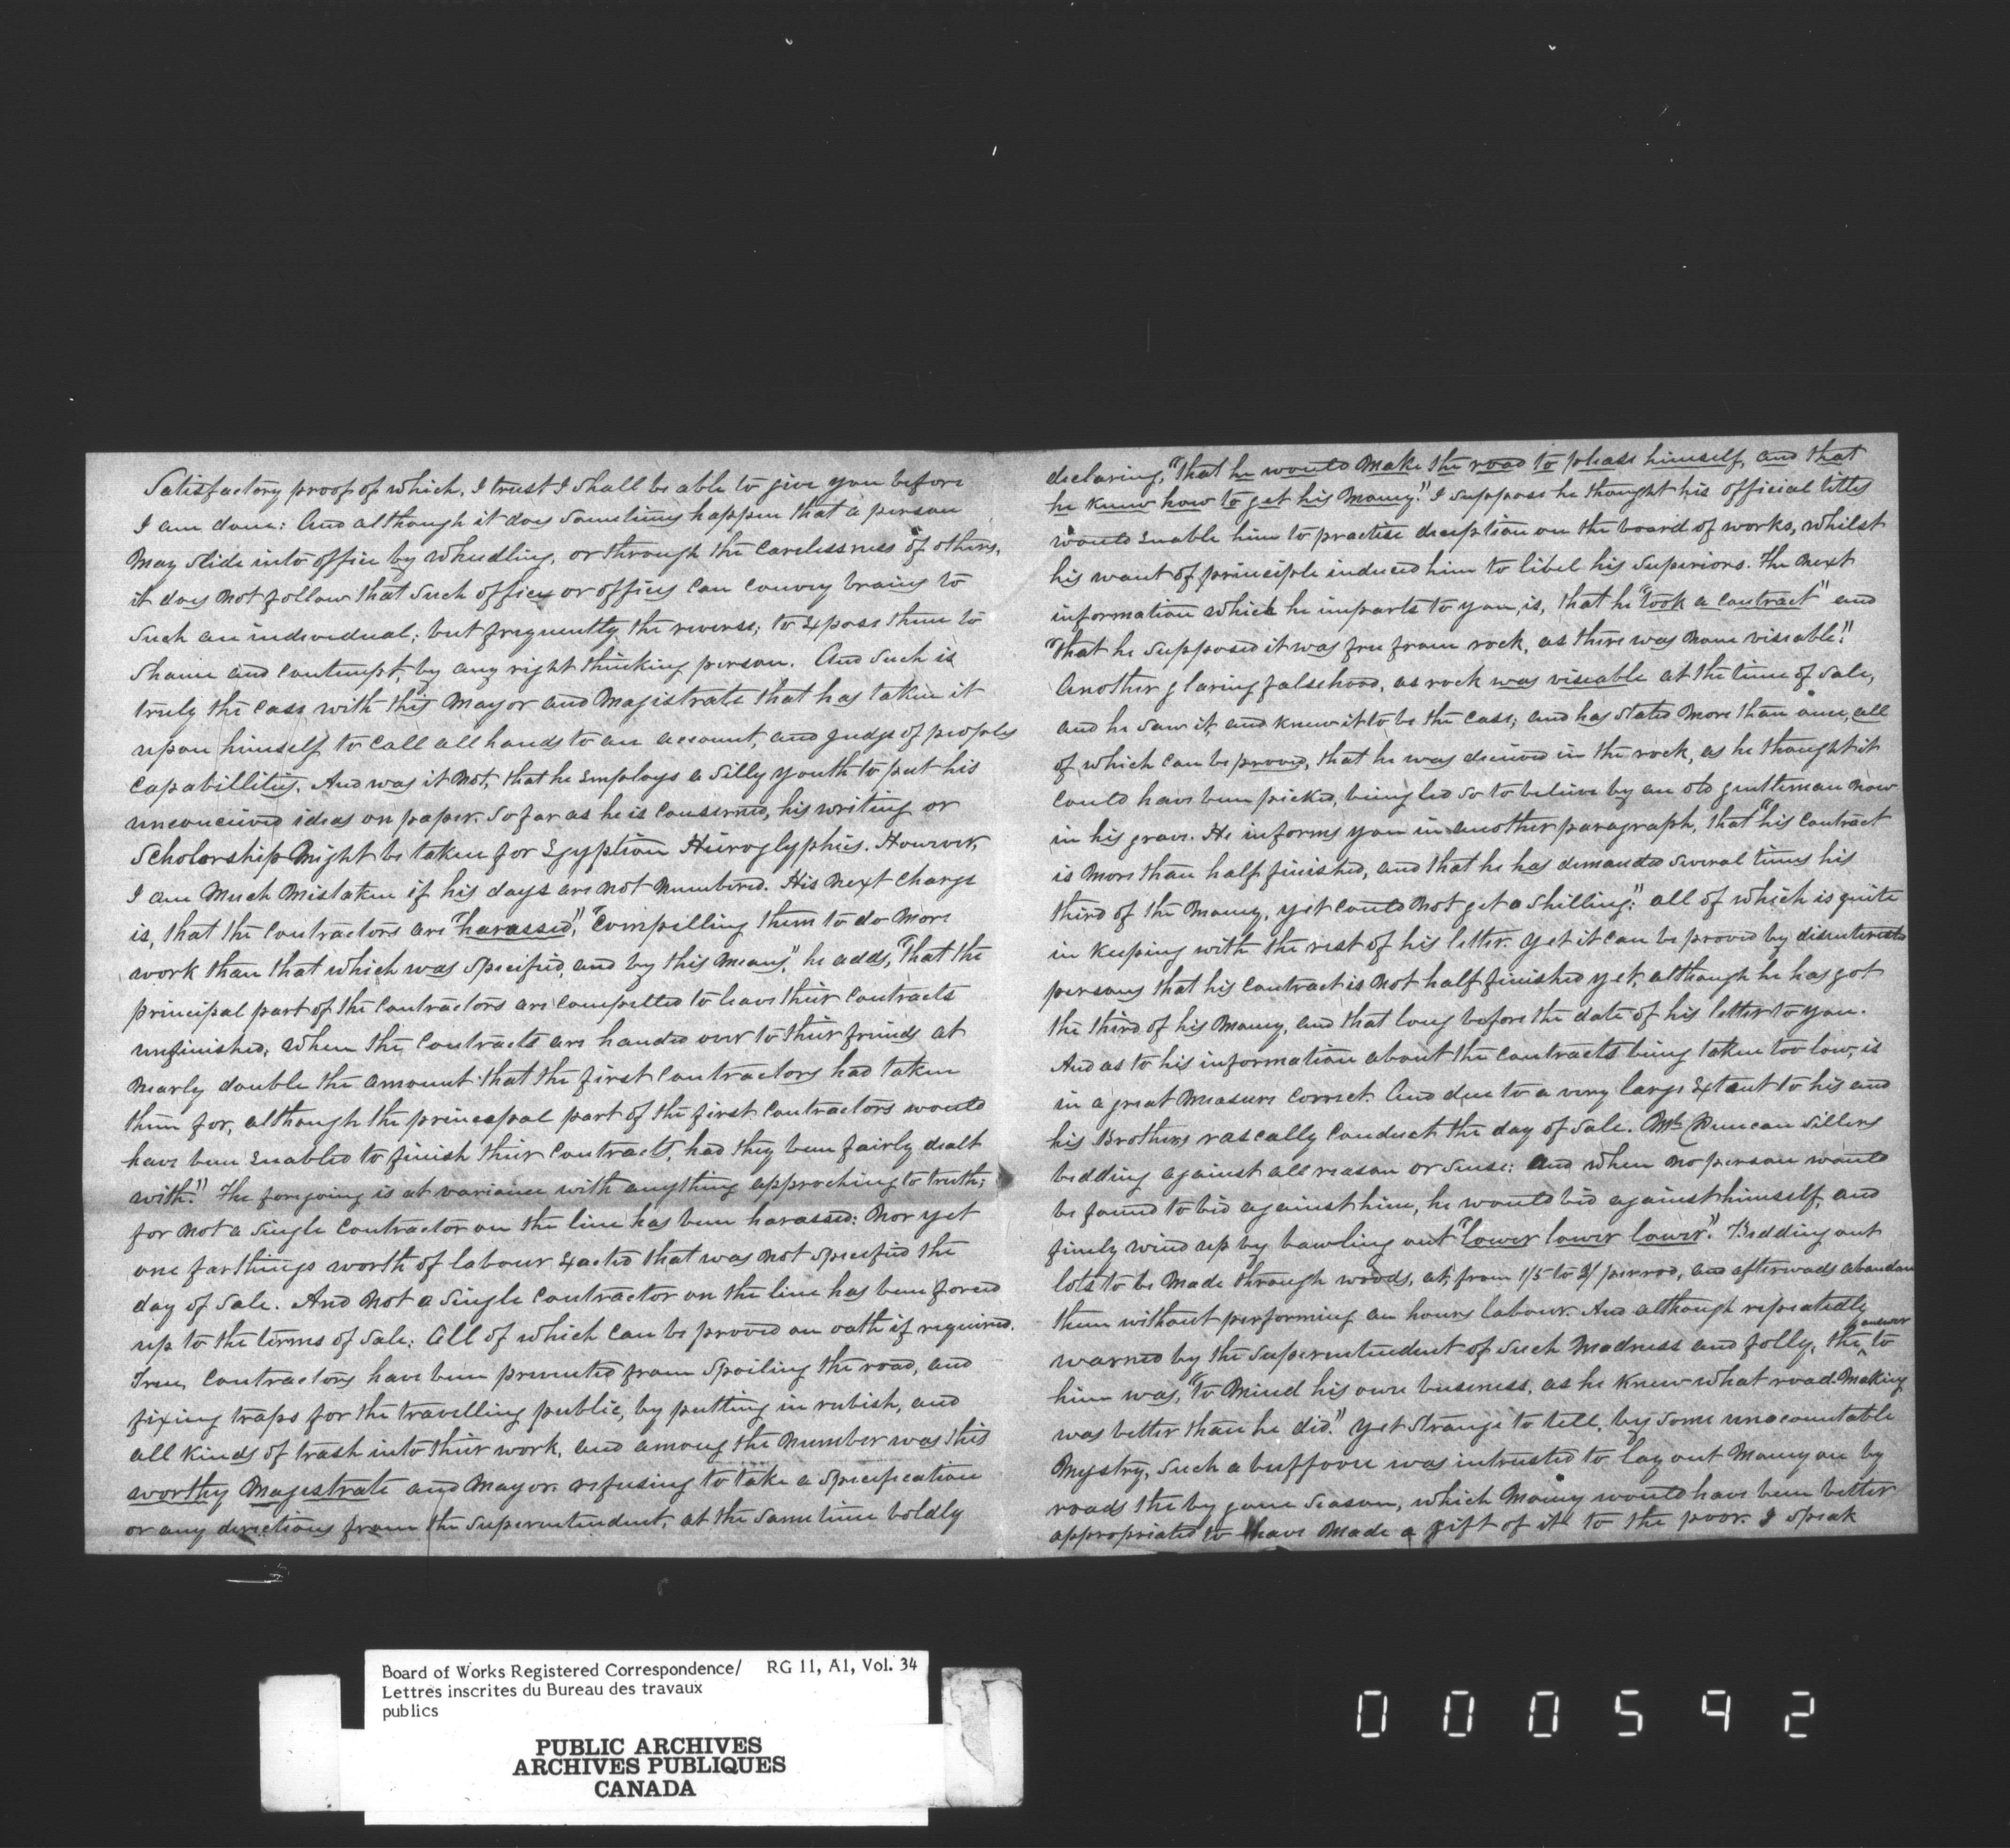 Satisfactory proof of which, I trust I shall be able to give you before
I am done: And although it does sometimes happen that a person
May slide into office by wheedling, or through the carelessness of others,
it does not follow that such office or offices can convey brains to
such an individual; but frequently the reverse; to expose them to
shame and contempt, by any right thinking person. And such is
truly the case with this Mayor and Magistrate that has taken it
upon himself to call all hands to an account, and judge of peoples
capabillities. And was it not, that he employs a silly youth to put his
unconceived ideas on paper. So far as he is conserned, his writing or
Scholorship Might be taken for Egyptian Hieroglyphics. However,
I am Much Mistaken if his days are not numbered. His next charge
is, that the contractors are "harassed", "compelling them to do More
work than that which was specified, and by this means," he adds, "that the
principal part of the contractors are compelled to leave their contracts
unfinished, when the contracts are handed over to their friends at
nearly double the amount that the first contractors had taken
them for, although the principal part of the first contractors would
have been enabled to finish their contracts, had they been fairly dealt
with." The foregoing is at variance with anything approching to truth;
for not a single contractor on the line has been harassed; Nor yet
one farthings worth of labour exacted that was not specified the
day of sale. And not a single contractor on the line has been forced
up to the terms of sale; All of which can be proved on oath if required.
True, contractors have been prevented from spoiling the road, and
fixing traps for the travelling public, by putting in rubish, and
all kinds of trash into their work, and among the number was this
worthy Magistrate and Mayor. refusing to take a specification
or any directions from the superentendent, at the same time boldly
declaring, "that he would make the road to please himself, and that
he knew how to get his money." I suppose he thought his official titles
would enable him to practise deception on the board of works, whilst
his want of principle induced him to libel his superiors. The next
information which he imparts to you, is, that he "took a contract" and
"that he supposed it was free from rock, as there was none viseable."
Another glaring falsehood, as rock was viseable at the time of sale,
and he saw it, and knew it to be the case; and has stated more than once, all
of which can be proved, that he was deceived in the rock, as he thought it
could have been picked, being led so to believe by an old gentleman now
in his grave. He informs you in another paragraph, that "his contract
is more than half finished, and that he has demanded several times his
third of the money, yet could not get a shilling:" all of which is quite
in keeping with the rest of his letter. Yet it can be proved by disinterested
persons that his contract is not half finished yet, although he has got
the third of his money, and that long before the date of his letter to you.
And as to his information about the contracts being taken too low, is
in a great measure correct. And due to a very large extent to his and
his Brothers rascally conduct the day of sale. Mr. Duncan Sillers
bedding against all reason or sense; and when no person would
be found to bid against him, he would bid against himself, and
finely wind up by bawling out "lower lower lower". Bedding out
lots to be made through woods, at, from 1/5 to 3/ per rod, and afterwads abandon
them without performing an hours labour. And although repeatedly
warned by the superentendent of such madness and folly, the answer to
him was, "to mind his own business, as he knew what road-making
was better than he did." Yet strange to tell, by some unacountable
Mystry, such a buffoon was intrusted to lay out money on by
roads the by gone season, which money would have been better
appropriated to have made a gift of it to the poor. I speak
Board of Works Registered Correspondence/ RG 11, A1, Vol. 34
Lettres inscrites du Bureau des travaux
publics
PUBLIC ARCHIVES
ARCHIVES PUBLIQUES
CANADA
000592